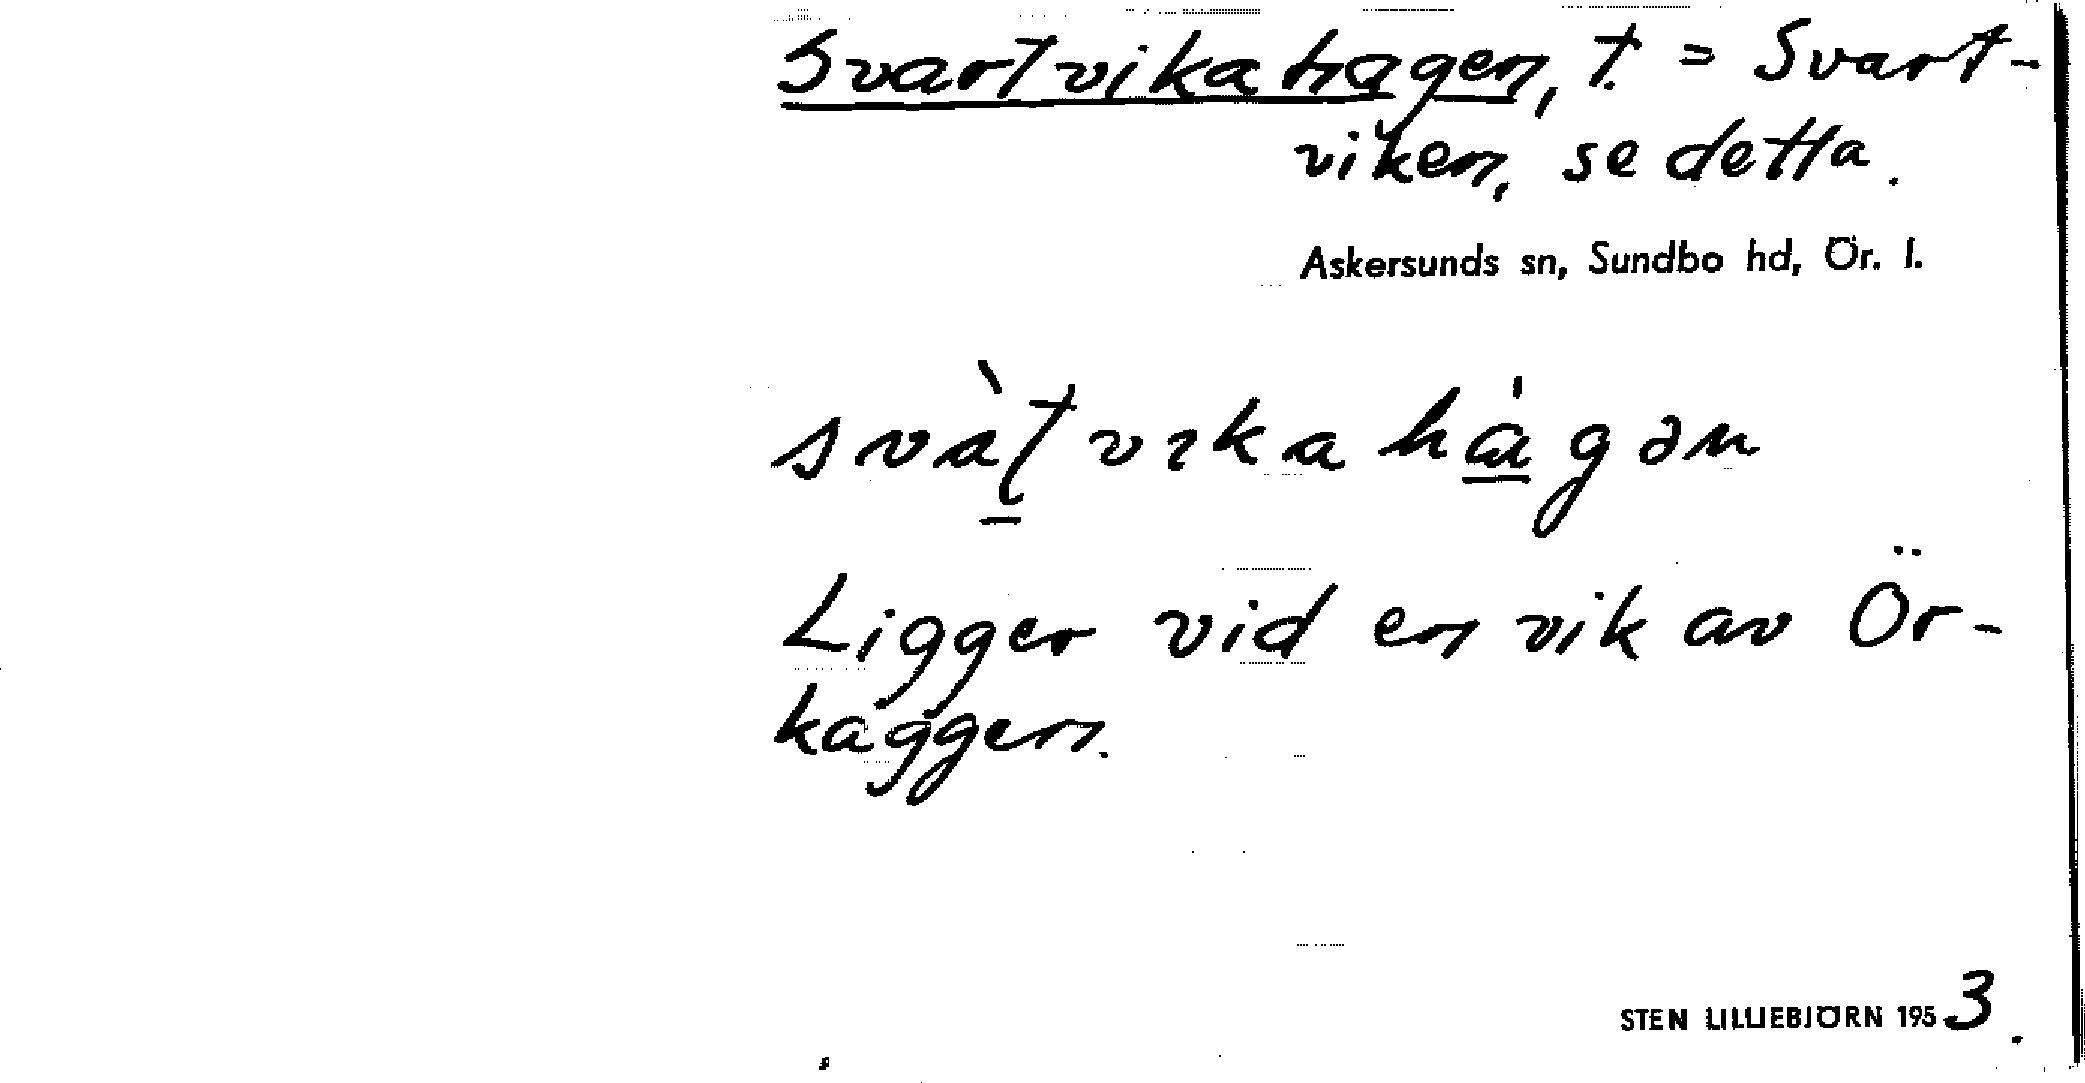 Svartvikahagen, t. = Svart-
viken, se detta.
Askersunds sn, Sundbo hd, Ör. l.
svàʈvıkahágən
Ligger vid en vik av Ör-
kaggen.
STEN LILLIEBJÖRN 1953.